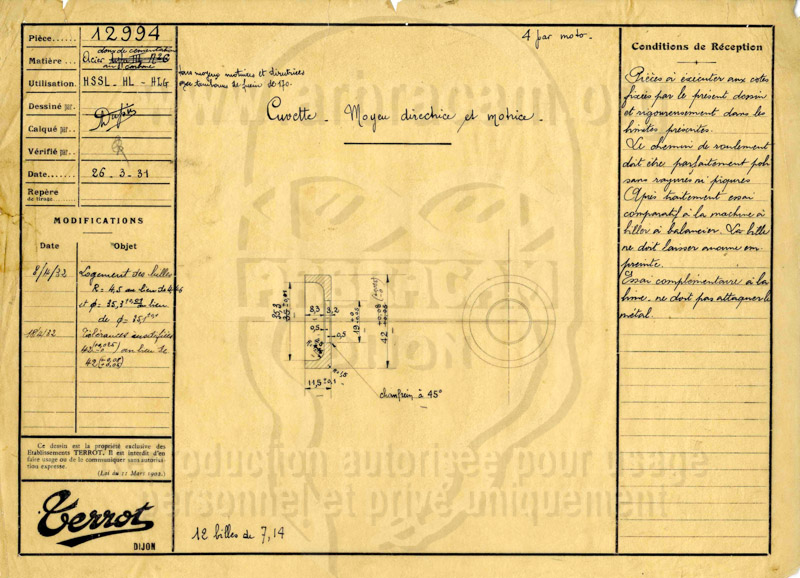 Pièce..... 12994
dans de cementation
Matière.... Acier
au carbone
Utilisation. HSSL - HL - HLG
Dessiné par.
Calqué par..
Vérifié par...
Date....... 26-3-31
Repère
de tirage
MODIFICATIONS
Date Objet
8/4/32 Logement des billes
R = 4,5 au lieu de
et φ = 35,3 au lieu
de φ = 35
Tolérances modifiées
au lieu de
42
Ce dessin est la propriété exclusive des
Etablissements TERROT. Il est interdit d'en
faire usage ou de le communiquer sans autorisa-
tion expresse.
(Loi du 11 Mars 1902.)
Terrot
DIJON
4 par moto-
pour moyeux motrices et directrices
avec tambours de frein de 170.
Cuvette - Moyeu directrice et motrice -
35,3
35
8,3
3,2
0,5
0,5
19
42
11,5 ±0,1
chanfrein à 45°
12 billes de 7,14
Conditions de Réception
Pièces à éxécuter aux cotes
fixées par le présent dessin
et rigoureusement dans les
limites présentes.
Le chemin de roulement
doit être parfaitement poli
sans rayures ni piqures
Après traitement essai
comparatif à la machine à
biller à balancier. La bille
ne doit laisser aucune em-
preinte.
Essai complémentaire à la
lime - ne doit pas attaquer le
métal.
Reproduction autorisée pour usage
personnel et privé uniquement